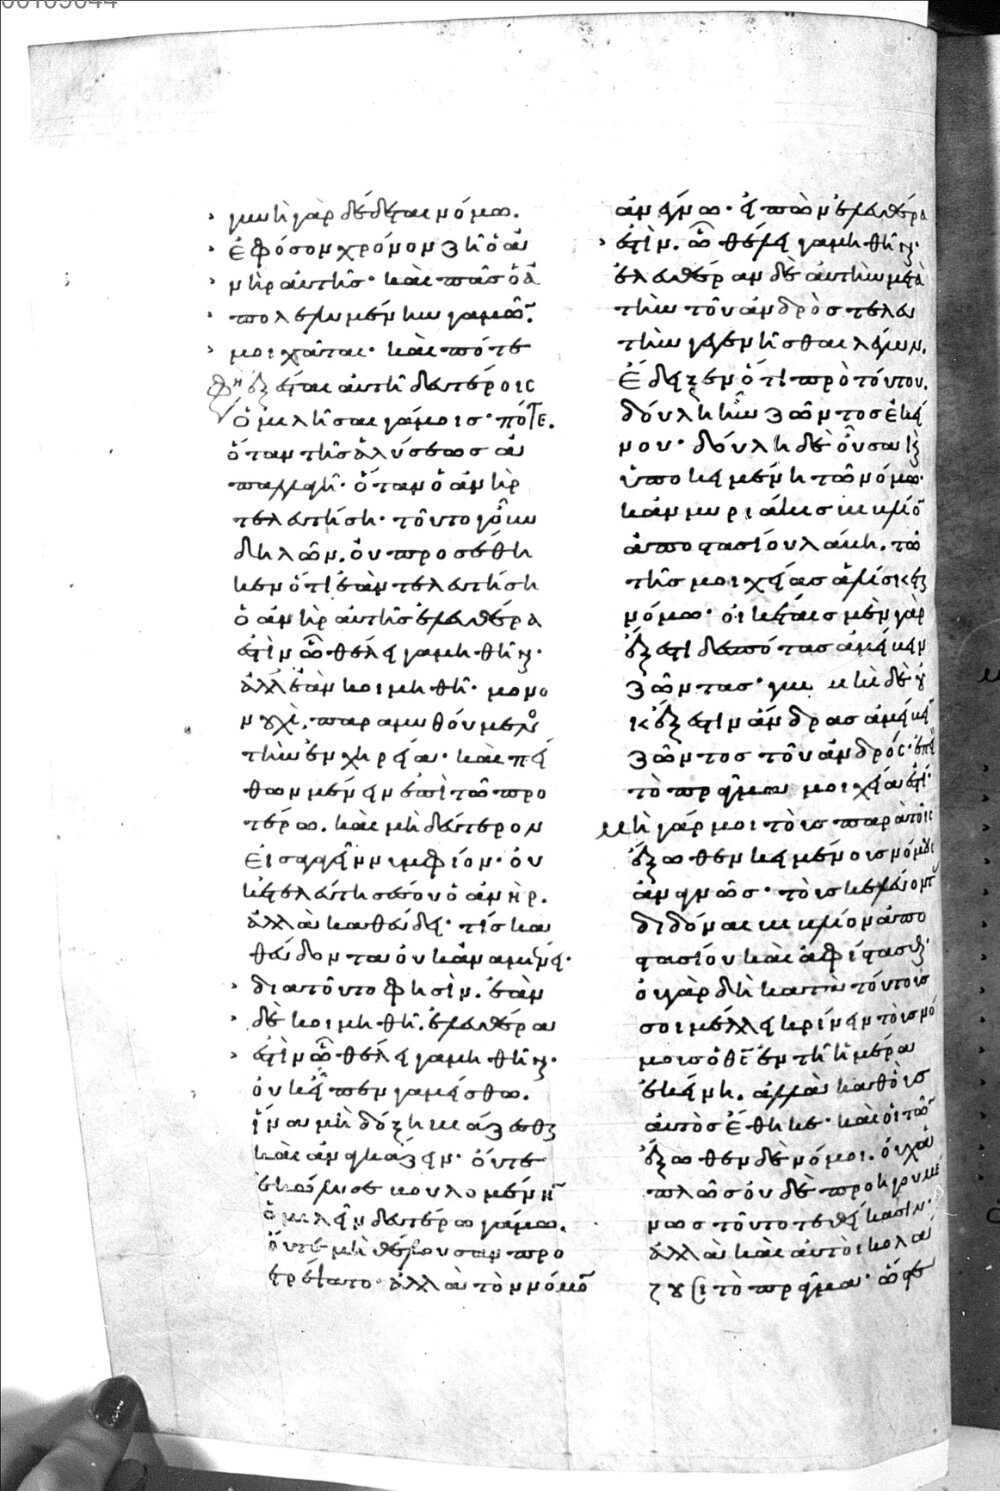 γυνὴ γὰρ δέδεται νόμω.
ἐφ' ὅσον χρόνον ζῆ ὁ ἀ
νὴρ αὐτῆς· καὶ πᾶσ ὁ ἀ
πολελυμένην γαμῶν
μοιχᾶται· καὶ πότε
ἐξέσται αὐτῆ δευτέροις
ὁμιλῆσαι γάμοις· πότε.
ὅταν τῆς ἁλύσεως ἀ
παλλαγῆ· ὅταν ὁ ἀνὴρ
τελευτήση· τοῦτο γοῦν
δηλῶν. οὐ προσέθη
κεν ὅτι ἐὰν τελευτήση
ὁ ἀνὴρ αὐτῆς ἐλευθέρα
ἐστὶν ὧ θέλει γαμηθῆναι·
ἀλλ' ἐὰν κοιμηθῆ· μονο
νουχὶ παραμυθούμενος
τὴν ἐν χηρεία· καὶ πεί
θων μένειν ἐπὶ τῶ προ
τέρω. καὶ μὴ δεύτερον
εἰσαγαγεῖν νυμφίον· οὐ
κ ἐτελεύτησέ σου ὁ ἀνήρ.
ἀλλὰ καθεύδει· τίς κα
θεύδοντα οὐκ ἀναμένει·
διατοῦτο φησὶν. ἐὰν
δὲ κοιμηθῆ. ἐλευθέρα
ἐστὶν ὧ θέλει γαμηθῆναι·
οὐκ εἶπεν γαμείσθω.
ἵνα μὴ δόξη βιάζεσθαι
καὶ ἀναγκάζειν· οὔτε
ἐκώλυσε βουλομένην
ὁμιλεῖν δευτέρω γάμω.
οὔτε μὴ θέλουσαν προ
ετρέψατο· ἀλλὰ τὸν νόμον
ἀνέγνω· εἰπὼν ἐλευθέρα
ἐστὶν. ὧ θέλει γαμηθῆναι·
ἐλευθέραν δὲ αὐτὴν μετὰ
τὴν τοῦ ἀνδρὸς τελευ
τὴν γεγενῆσθαι λέγων.
ἔδειξεν ὅτι πρὸ τούτου.
δούλη ἦν ζῶντος ἐκεί
νου· δούλη δὲ οὖσα καὶ
ὑποκειμένη τῶ νόμω·
κἂν μυριάκις βιβλίον
ἀποστασίου λάβη. τῶ
τῆς μοιχείας ἁλίσκεται
νόμω· οἰκέταις μὲν γὰρ
ἔξεστι δεσπότας ἀμείβειν
ζῶντας· γυναικὶ δὲ οὐ
κ ἔξεστιν ἄνδρας ἀμείβειν
ζῶντος τοῦ ἀνδρός· ἐπεὶ
τὸ πρᾶγμα μοιχεία ἐστί·
μὴ γάρ μοι τοὺς παρὰ τοῖς
ἔξωθεν κειμένους νόμους
ἀναγνῶς· τοὺς κελεύοντας
διδόναι βιβλίον ἀπο
στασίου καὶ ἀφίστασθαι·
οὐ γὰρ δὴ κατὰ τούτους
σοι μέλλει κρίνειν τοὺς νό
μους ὁ θς ἐν τῆ ἡμέρα
ἐκείνη. ἀλλὰ καθ' οὓς
αὐτὸς ἔθηκε· καὶ οἱ τῶν
ἔξωθεν δὲ νόμοι. οὐχ ἁ
πλῶς οὐδὲ προηγουμέ
νως τοῦτο τεθείκασιν·
ἀλλὰ καὶ αὐτοὶ κολά
ζουσι τὸ πρᾶγμα· ὥστε